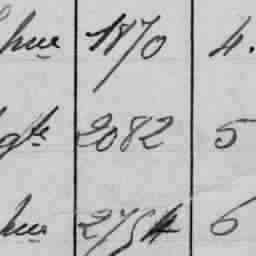 hue 1870 4.
gte 2082 5
hue 2754 6